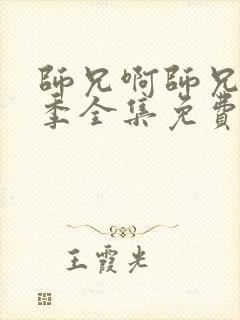 師兄啊師兄
季全集免費
王霞光